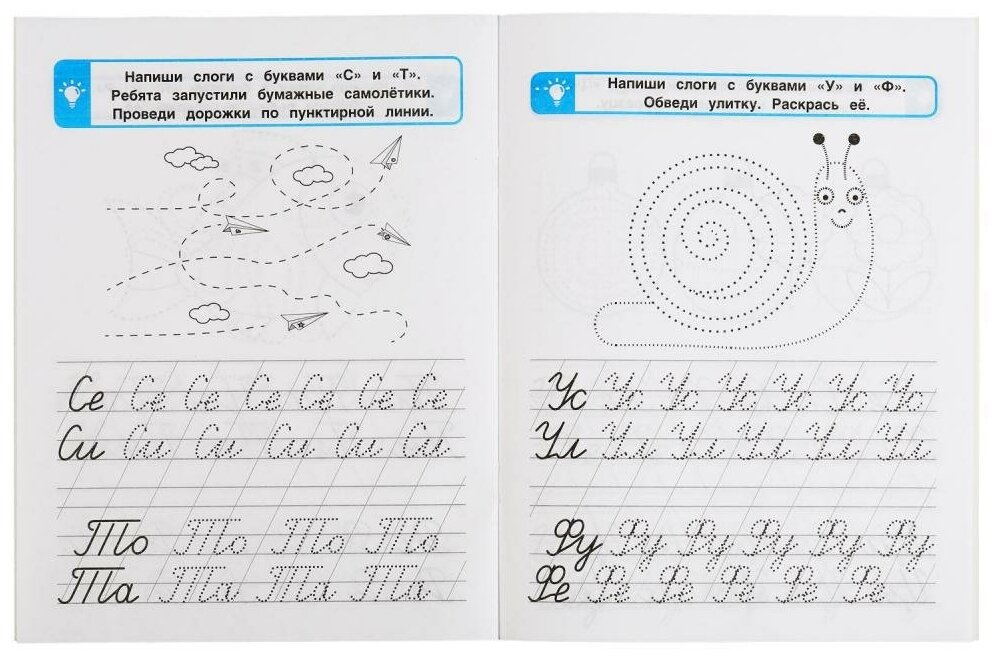 Напиши слоги с буквами «С» и «Т».
Ребята запустили бумажные самолётики.
Проведи дорожки по пунктирной линии.
Се Се Се Се Се Се Се
Си Си Си Си Си Си
То То То То
Та Та Та Та
Напиши слоги с буквами «У» и «Ф».
Обведи улитку. Раскрась её.
Ус Ус Ус Ус Ус Ус Ус
Ул Ул Ул Ул Ул Ул
Фу Фу Фу Фу Фу Фу
Фе Фе Фе Фе Фе Фе